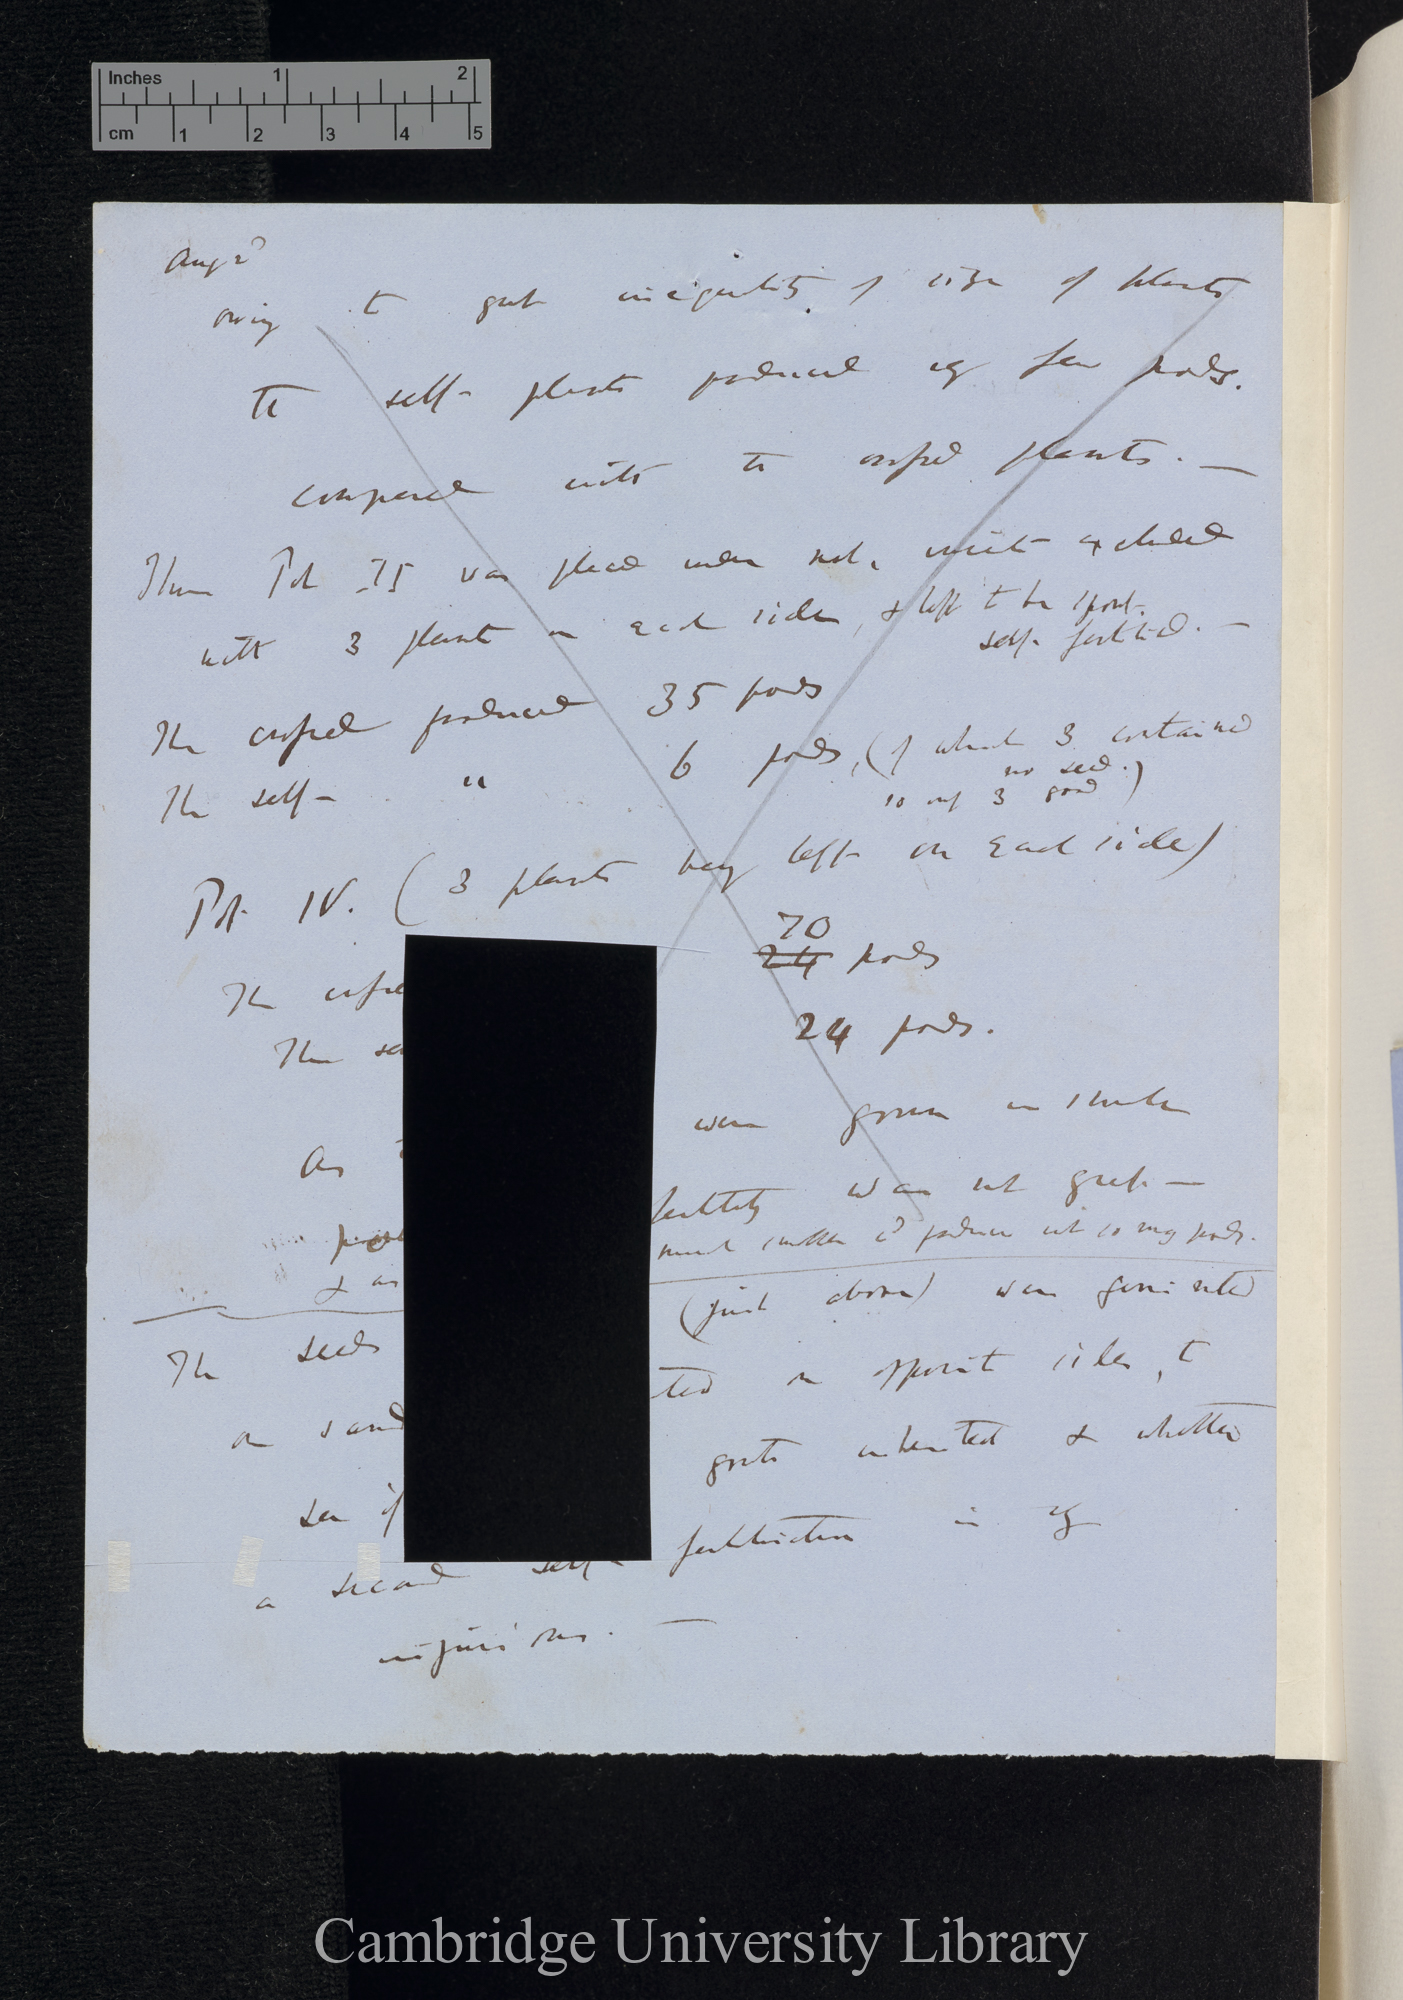 Inches 1 2
cm 1 2 3 4 5
Aug 2d
owing to great inequality of size of plants
The self- plants produced very few pods.
compared with the crossed plants. —
Then Pot III was placed under net, insects excluded
with 3 plants on each side, & left to be spont.
self- fertilised. —
The crossed produced 35 pods
The self- " 6 pods, (of which 3 contained
no seed.
so only 3 good)
Pot IV. (3 plants being left on each side)
70
The crosse 24 pods
The se 24 pods.
As were grown in
fertility was not great —
& as much smaller cd produce not so many pods.
The seeds (just above) were germinated
on sand ted on opposite sides, to
see if growth inherited & whether
a second self- fertilisation is very
injurious. —
Cambridge University Library